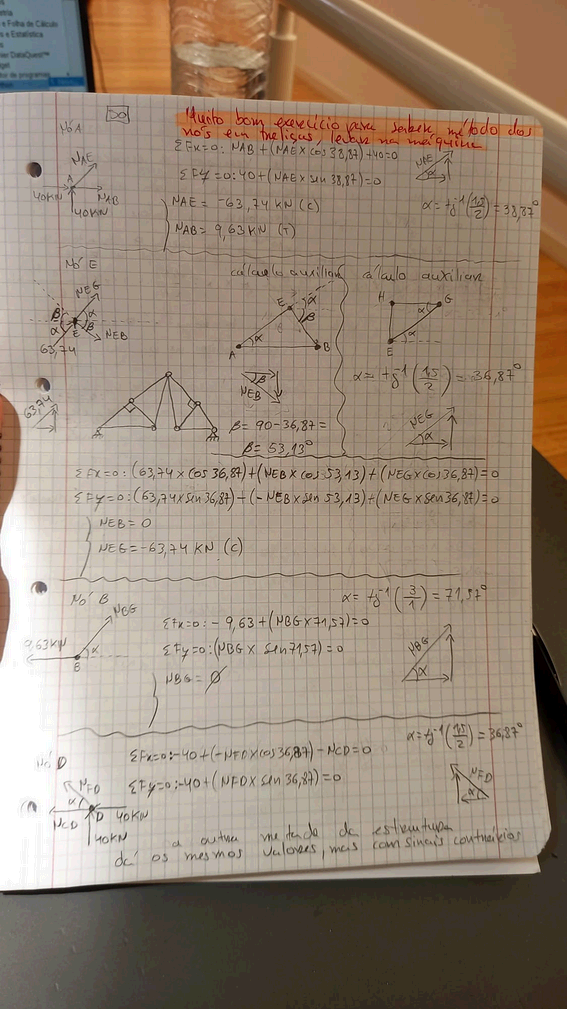 e Folha de Cálculo
e Estatística
Muito bom exercício para saber método dos
nós em treliças, levar na máquina
Nó A
ΣFx=0: NAB + (NAE × cos 38,87) + 40 = 0
ΣFy=0: 40 + (NAE × sen 38,87) = 0
NAE = -63,74 KN (C)
NAB = 9,63 KN (T)
NAE
A
40KN
NAB
40KN
NAE
α
α = tg⁻¹ (1,5/2) = 38,87°
Nó E
NEG
β
α
α
β
E
NEB
63,74
63,74
cálculo auxiliar
E
α
β
A
α
B
β
NEB
β = 90 - 36,87 =
β = 53,13°
cálculo auxiliar
H
G
α
E
α = tg⁻¹ (1,5/2) = 36,87°
NEG
α
ΣFx=0: (63,74 × cos 36,87) + (NEB × cos 53,13) + (NEG × cos 36,87) = 0
ΣFy=0: (63,74 × sen 36,87) + (-NEB × sen 53,13) + (NEG × sen 36,87) = 0
NEB = 0
NEG = -63,74 KN (C)
Nó B
NBG
9,63KN
α
B
α = tg⁻¹ (3/1) = 71,57°
ΣFx=0: - 9,63 + (NBG × 71,57) = 0
ΣFy=0: (NBG × sen 71,57) = 0
NBG = Ø
NBG
α
Nó D
ΣFx=0: -40 + (-NFD × cos 36,87) - NCD = 0
ΣFy=0: -40 + (NFD × sen 36,87) = 0
α = tg⁻¹ (1,5/2) = 36,87°
NFD
α
D
40KN
NCD
40KN
NFD
α
a outra metade da estrutura
dá os mesmos valores, mas com sinais contrários